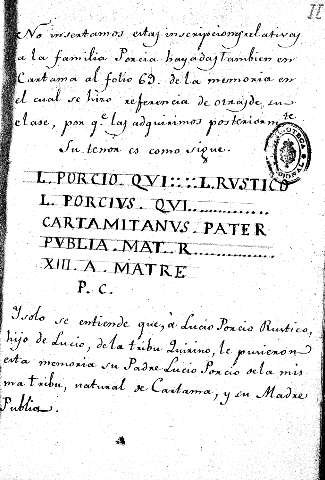 No insertamos estas inscripciones relativas
a la familia Porcia hayadas tambien en
Cartama al folio 69. de la memoria en
el cual se hizo referencia de otras de su
clase, por q.e las adquirimos posteriorm.te
Su tenor es como sigue.
L. PORCIO QVI::::L.RUSTICO
L. PORCIVS QVI..............
CARTAMITANVS PATER
PVBLIA MAT R..............
XIII A MATRE
P. C.
Y solo se entiende que, à Lucio Porcio Rustico,
hijo de Lucio, de la tribu Quirino, le pusieron
esta memoria su Padre Lucio Porcio de la mis
ma tribu, natural de Cartama, y su Madre
Publia.